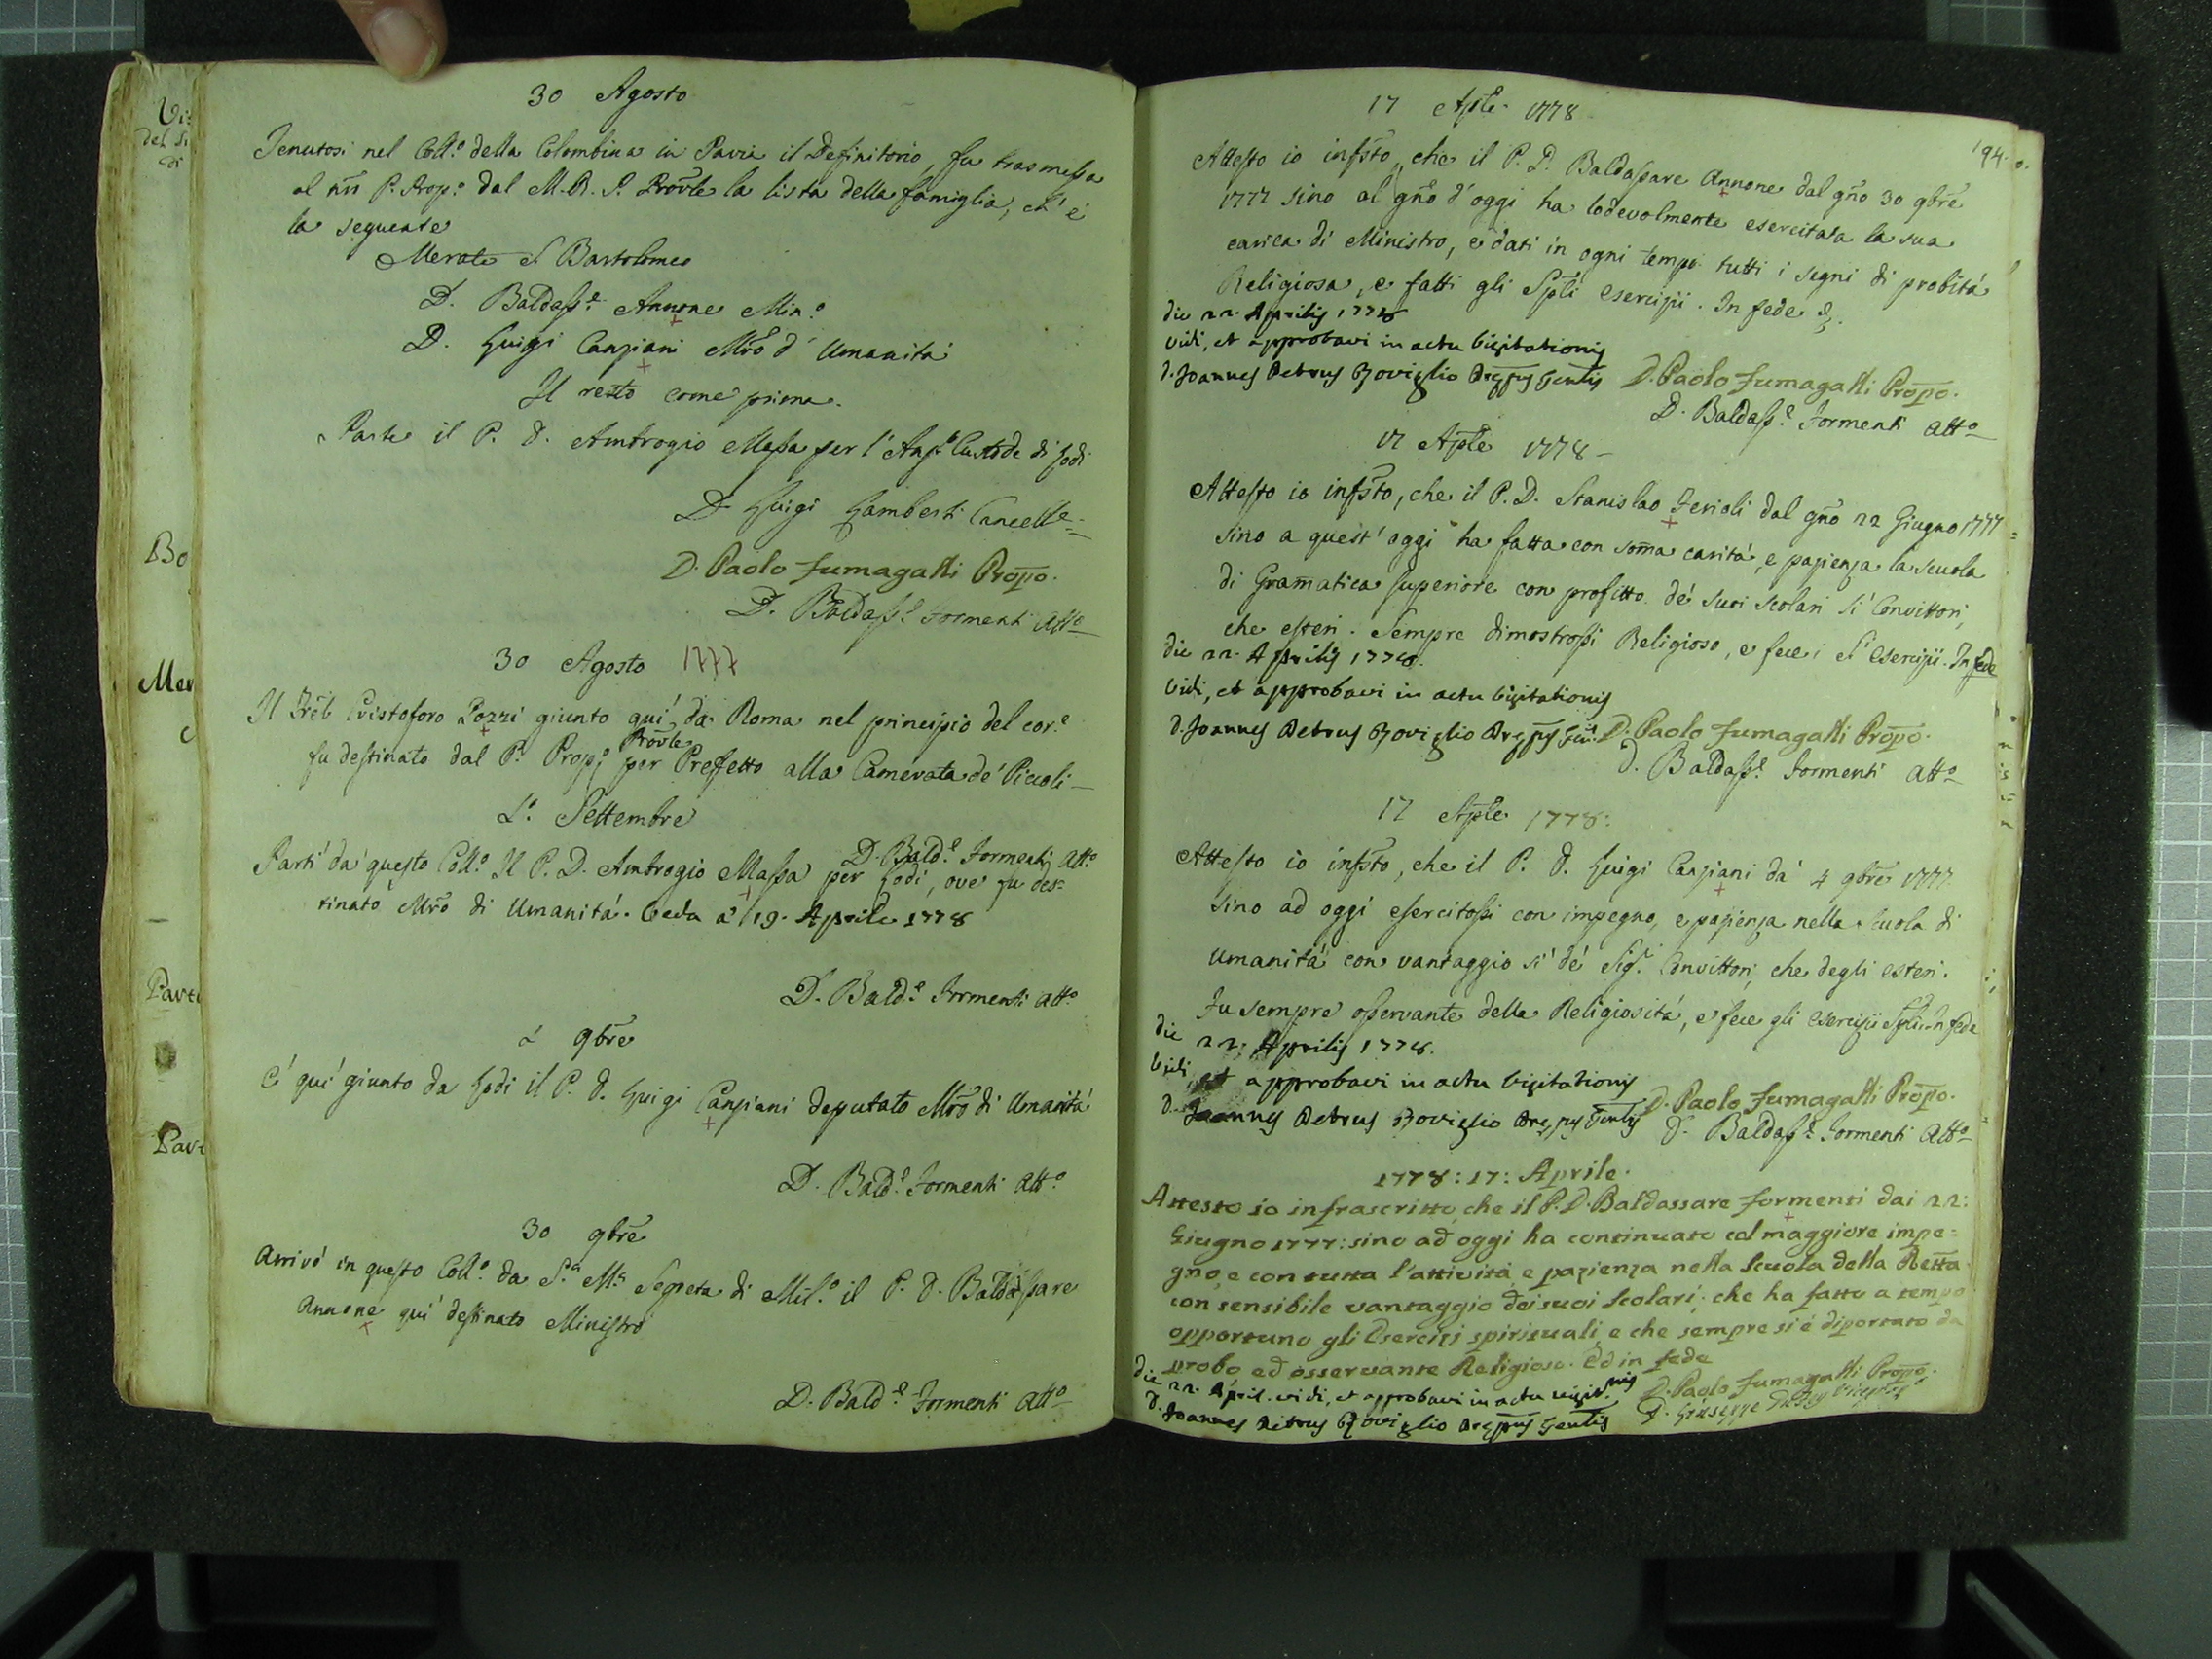 30 Agosto
Tenutosi nel Coll.º della Colombina in Pavia il Definitorio, fu trasmessa
al P. Prop.º dal M. R. P. Prõvle la lista della famiglia, ch'è
la seguente
Merate S. Bartolomeo
D. Baldass.e Annone Min.º
D. Luigi Canziani Mrõ d'Umanità
Il resto come prima.
Parte il P. D. Ambrogio Massa per l'Ang.º Custode di Lodi
D. Luigi Lamberti Cancell.e
D. Paolo Fumagalli Propo.
D. Baldass.e Formenti Att.º
30 Agosto 1777
Il Cristoforo Pozzi giunto quì da Roma nel principio del cor.e
fu destinato dal P. Prop.º Prõvle per Prefetto alla Camerata de' Piccoli
D. Bald.e Formenti Att.º
Settembre
Partì da questo Coll.º Il P. D. Ambrogio Massa per Lodi, ove fu des=
tinato Mrõ di Umanità. Veda a' 19. Aprile 1778
D. Bald.e Formenti Att.º
qbre
È quì giunto da Lodi il P. D. Luigi Canziani deputato Mrõ di Umanità
D. Bald.e Formenti Att.º
30 qbre
Arrivò in questo Coll.º da S.a M.a Segreta di Mil.º il P. D. Baldassare
Annone quì destinato Ministro
D. Bald.e Formenti Att.º
194.
17 Aple 1778
Attesto io infrsto, che il P. D. Baldassare Annone dal gño 30 qbre
1777 sino al gño d'oggi ha lodevolmente esercitata la sua
carica di Ministro, e dati in ogni tempo tutti i segni di probità
Religiosa, e fatti gli Spli esercizii. In fede &.
die 22. Aprilis 1778
vidi, et approbavi in actu visitationis
D. Joannes Petrus Roviglio Prepus Genlis
D. Paolo Fumagalli Propo.
D. Baldass.e Formenti Att.º
17 Aple 1778
Attesto io infrsto, che il P. D. Stanislao Ferioli dal gño 22 Giugno 1777
sino a quest'oggi ha fatta con soma carità, e pazienza la scuola
di Gramatica superiore con profitto de' suoi scolari sì Convittori,
che esteri. Sempre dimostrossi Religioso, e fece i S.i esercizii. In fede
die 22. Aprilis 1778.
vidi, et approbavi in actu visitationis
D. Joannes Petrus Roviglio Prepus Genlis
D. Paolo Fumagalli Propo.
D. Baldass.e Formenti Att.º
17 Aple 1778.
Attesto io infrsto, che il P. D. Luigi Canziani da' 4 qbre 1777
sino ad oggi esercitossi con impegno, e pazienza nella scuola di
Umanità con vantaggio sì de' Sig.i Convittori, che degli esteri.
Fu sempre osservante della Religiosità, e fece gli esercizii Spli. In fede
die 22. Aprilis 1778.
vidi, et approbavi in actu visitationis
D. Joannes Petrus Roviglio Prepus Genlis
D. Paolo Fumagalli Propo.
D. Baldass.e Formenti Att.º
1778: 17: Aprile.
Attesto io infrascritto, che il P. D. Baldassare Formenti dai 22:
Giugno 1777: sino ad oggi ha continuato col maggiore impe=
gno, e con tutta l'attività, e pazienza nella Scuola della Retta.
con sensibile vantaggio dei suoi Scolari; che ha fatto a tempo
opportuno gli Esercizj spirituali, e che sempre si è diportato da
probo, ed osservante Religioso. Ed in fede
die 22. April. vidi, et approbavi in actu visit.nis
D. Joannes Petrus Roviglio Prepus Genlis
D. Paolo Fumagalli Propo.
D. Giuseppe